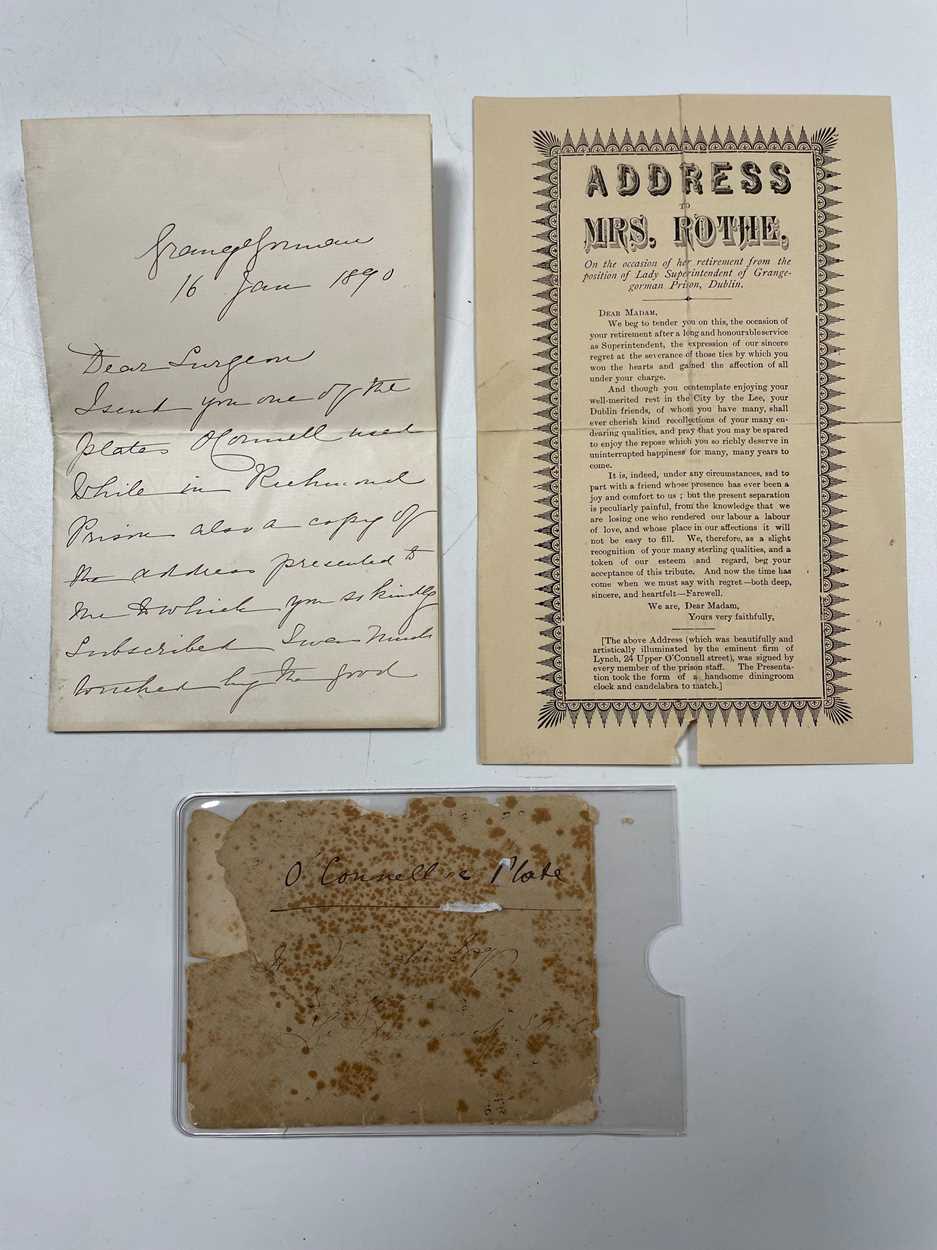 Grangegorman
16 Jan 1890
Dear Surgeon
I send you one of the
plates O'Connell used
While in Richmond
Prison also a copy of
the address presented to
me & which you so kindly
Subscribed I was much
touched by the good
ADDRESS
TO
MRS. ROTHE,
On the occasion of her retirement from the
position of Lady Superintendent of Grange-
gorman Prison, Dublin.
DEAR MADAM,
We beg to tender you on this, the occasion of
your retirement after a long and honourable service
as Superintendent, the expression of our sincere
regret at the severance of those ties by which you
won the hearts and gained the affection of all
under your charge.
And though you contemplate enjoying your
well-merited rest in the City by the Lee, your
Dublin friends, of whom you have many, shall
ever cherish kind recollections of your many en-
dearing qualities, and pray that you may be spared
to enjoy the repose which you so richly deserve in
uninterrupted happiness for many, many years to
come.
It is, indeed, under any circumstances, sad to
part with a friend whose presence has ever been a
joy and comfort to us ; but the present separation
is peculiarly painful, from the knowledge that we
are losing one who rendered our labour a labour
of love, and whose place in our affections it will
not be easy to fill. We, therefore, as a slight
recognition of your many sterling qualities, and a
token of our esteem and regard, beg your
acceptance of this tribute. And now the time has
come when we must say with regret—both deep,
sincere, and heartfelt—Farewell.
We are, Dear Madam,
Yours very faithfully,
[The above Address (which was beautifully and
artistically illuminated by the eminent firm of
Lynch, 24 Upper O'Connell street), was signed by
every member of the prison staff. The Presenta-
tion took the form of a handsome diningroom
clock and candelabra to match.]
O'Connell Plate
Esq